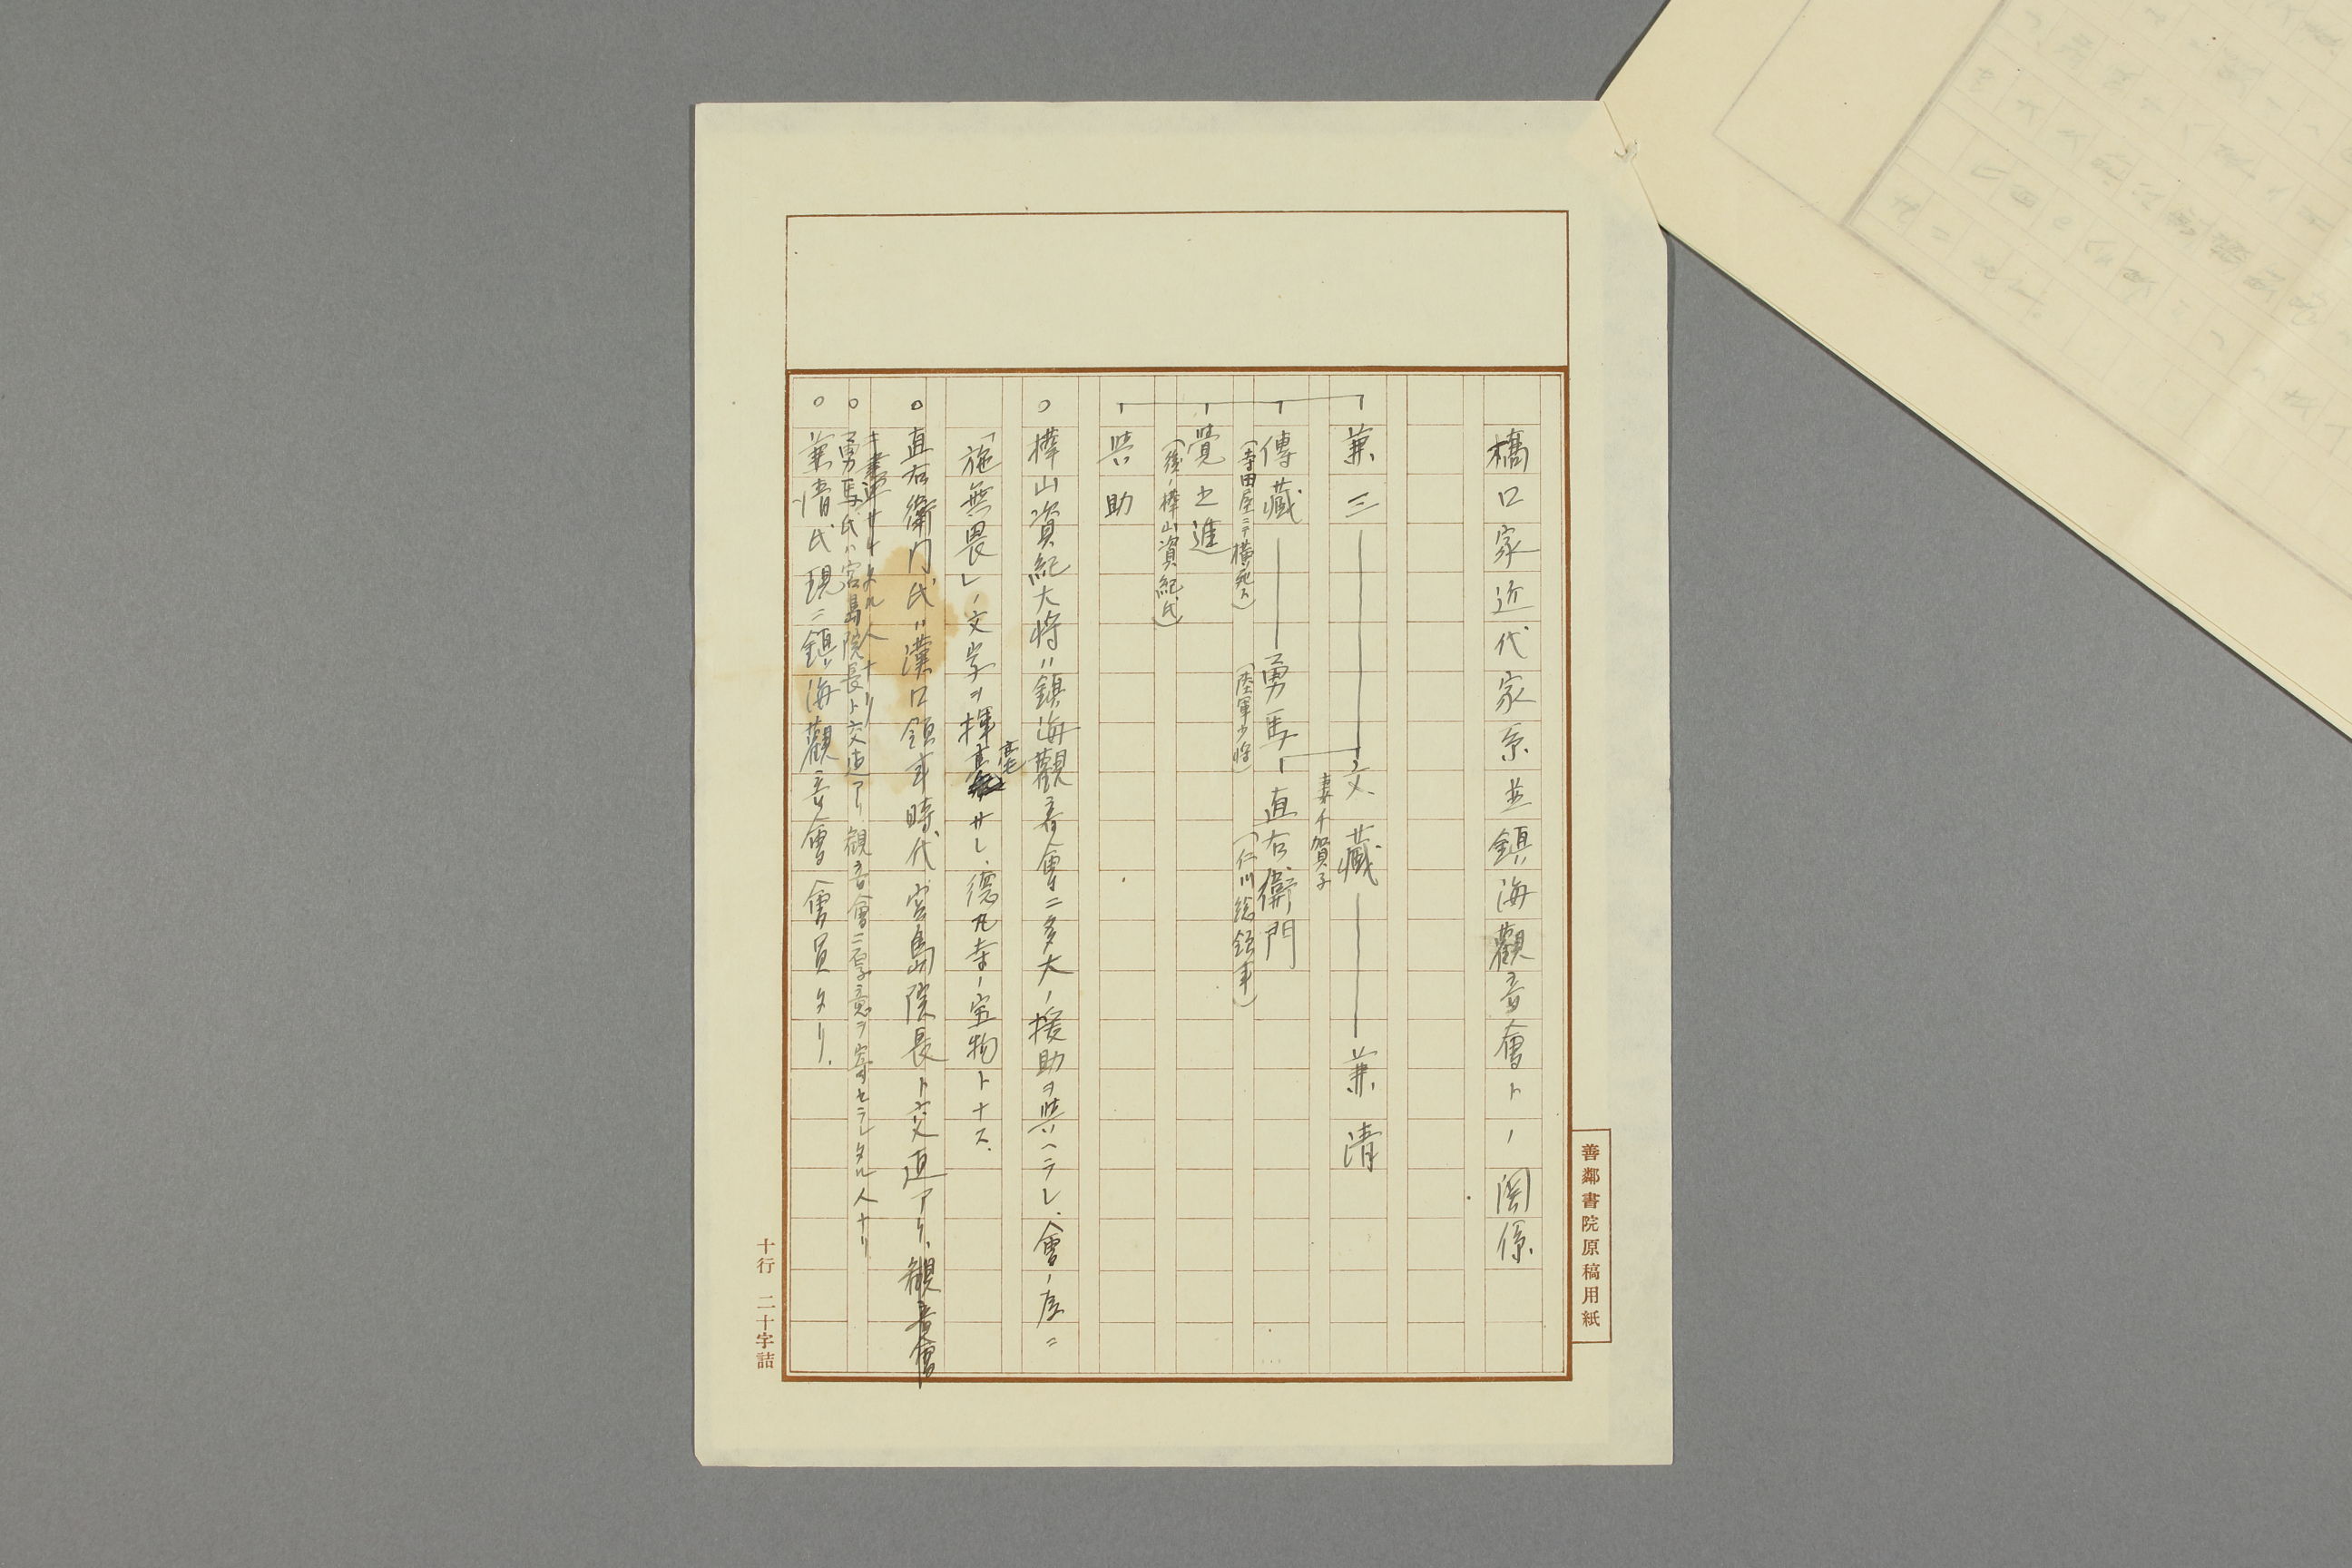 橋口家近代家系並鎮海觀音會トノ関係
兼三――文藏――兼清
妻千賀子
傳藏――勇馬―直右衛門
(寺田屋ニテ横死ス) (陸軍少將) (仁川総領事)
覺之進
(後ノ樺山資紀氏)
與助
○樺山資紀大将ハ鎮海觀音會ニ多大ノ援助ヲ與ヘラレ、會ノ席ニ
「施無畏」ノ文字ヲ揮毫サレ、德丸寺ノ宝物トナス.
○直右衛門氏ハ漢口領事時代宮島院長ト交逭アリ、觀音會
サレタル人ナリ
○勇馬氏ハ宮島院長ト交逭アリ觀音會ニ厚意ヲ寄セラレタル人ナリ
○兼清氏現ニ鎮海觀音會會員タリ.
善鄰書院原稿用紙
十行 二十字詰